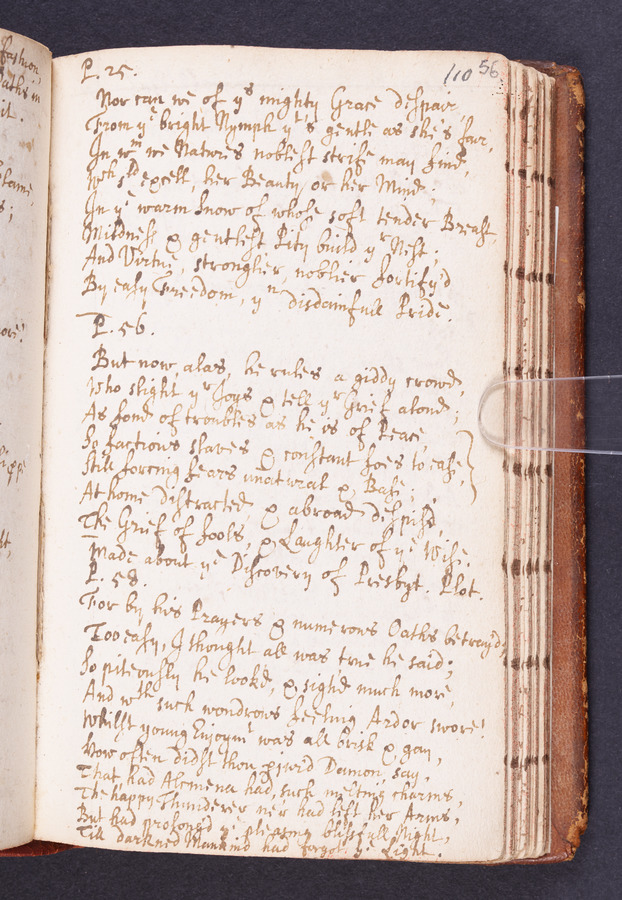 fashion,
Oaths in
it.
110 56
P. 25.
Nor can we of yᵗ mighty Grace despair,
From yᵉ bright Nymph yᵗ's gentle as she's fair,
In wᵐ we Natures noblest strife may find,
wᶜʰ shᵈ excell, her Beauty or her Mind;
In yᵉ warm Snow of whose soft tender Breast,
Mildness & gentlest Pity build yʳ Nest;
And Virtue, stronglier, noblier fortify'd
By easy Freedom, yⁿ disdainfull Pride.
P. 56.
But now, alas, he rules a giddy crowd,
Who slight yʳ Joys & tell yʳ Grief aloud;
As fond of troubles as he is of Peace,
So factious slaves & constant foes to ease,
Still forcing fears unnatural & Base;
At home Distracted, & abroad despis'd,
The Grief of fools, & Laughter of yᵉ Wise.
Made about yᵉ Discovery of Presbyt. Plot.
P. 58.
For by his Prayers & numerous Oaths betray'd,
Too easy, I thought all was true he said;
So piteously he look'd, & sigh'd much more,
And wᵗʰ such wondrous feeling Ardor swore!
Whilst young Enjoymᵗ was all brisk & gay,
How often didst thou, perjur'd Damon, say,
That had Alcmena had such melting charms,
The happy Thunderer ne'r had left her Arms,
But had prolong'd yᵉ pleasing blissfull Night,
Till darkned Mankind had forgot yᵉ Light.